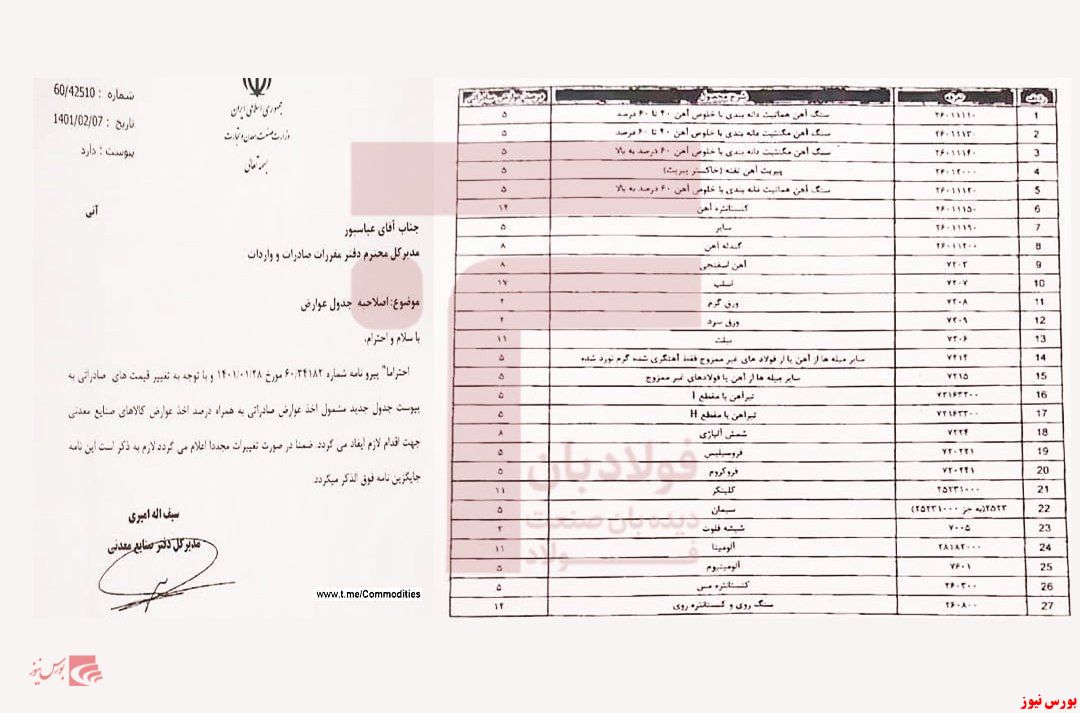 شماره : 60/42510
تاریخ : 1401/02/07
پیوست : دارد
جمهوری اسلامی ایران
وزارت صنعت، معدن و تجارت
بسمه تعالی
آنی
جناب آقای عباسپور
مدیرکل محترم دفتر مقررات صادرات و واردات
موضوع: اصلاحیه جدول عوارض
با سلام و احترام،
احتراما" پیرو نامه شماره ۶۰/۲۴۱۸۲ مورخ ۱۴۰۱/۰۱/۲۸ و با توجه به تغییر قیمت های صادراتی به
پیوست جدول جدید مشمول اخذ عوارض صادراتی به همراه درصد اخذ عوارض کالاهای صنایع معدنی
جهت اقدام لازم ایفاد می گردد. ضمنا در صورت تغییرات مجددا اعلام می گردد.لازم به ذکر است این نامه
جایگزین نامه فوق الذکر میگردد.
سیف اله امیری
مدیرکل دفتر صنایع معدنی
www.t.me/Commodities
ردیف تعرفه شرح محصول درصد عوارض صادراتی
1 ۲۶۰۱۱۱۱۰ سنگ آهن هماتیت دانه بندی با خلوص آهن ۴۰ تا ۶۰ درصد ۵
2 ۲۶۰۱۱۱۳۰ سنگ آهن مگنتیت دانه بندی با خلوص آهن ۴۰ تا ۶۰ درصد ۵
3 ۲۶۰۱۱۱۴۰ سنگ آهن مگنتیت دانه بندی با خلوص آهن ۶۰ درصد به بالا ۵
4 ۲۶۰۱۲۰۰۰ پیریت آهن تفته (خاکستر پیریت) ۵
5 ۲۶۰۱۱۱۲۰ سنگ آهن هماتیت دانه بندی با خلوص آهن ۶۰ درصد به بالا ۵
6 ۲۶۰۱۱۱۵۰ کنسانتره آهن ۱۴
7 ۲۶۰۱۱۱۹۰ سایر ۵
8 ۲۶۰۱۱۲۰۰ گندله آهن ۸
9 ۷۲۰۳ آهن اسفنجی ۸
10 ۷۲۰۷ اسلب ۱۷
11 ۷۲۰۸ ورق گرم ۲
12 ۷۲۰۹ ورق سرد ۲
13 ۷۲۰۶ بیلت ۱۱
14 ۷۲۱۴ سایر میله ها از آهن یا از فولاد های غیر ممزوج فقط آهنگری شده گرم نورد شده ۵
15 ۷۲۱۵ سایر میله ها از آهن یا فولادهای غیر ممزوج ۵
16 ۷۲۱۶۳۲۰۰ تیرآهن با مقطع I ۵
17 ۷۲۱۶۳۳۰۰ تیرآهن با مقطع H ۵
18 ۷۲۲۴ شمش آلیاژی ۸
19 ۷۲۰۲۲۱ فروسیلیس ۵
20 ۷۲۰۲۴۱ فروکروم ۵
21 ۲۵۲۳۱۰۰۰ کلینکر ۱۱
22 ۲۵۲۳(به جز ۲۵۲۳۱۰۰۰) سیمان ۵
23 ۷۰۰۵ شیشه فلوت ۲
24 ۲۸۱۸۲۰۰۰ آلومینا ۱۱
25 ۷۶۰۱ آلومینیوم ۵
26 ۲۶۰۳۰۰ کنسانتره مس ۵
27 ۲۶۰۸۰۰ سنگ روی و کنسانتره روی ۱۴
فولادبان
دیده‌بان صنعت
فولاد
بورس نیوز
بورس نیوز